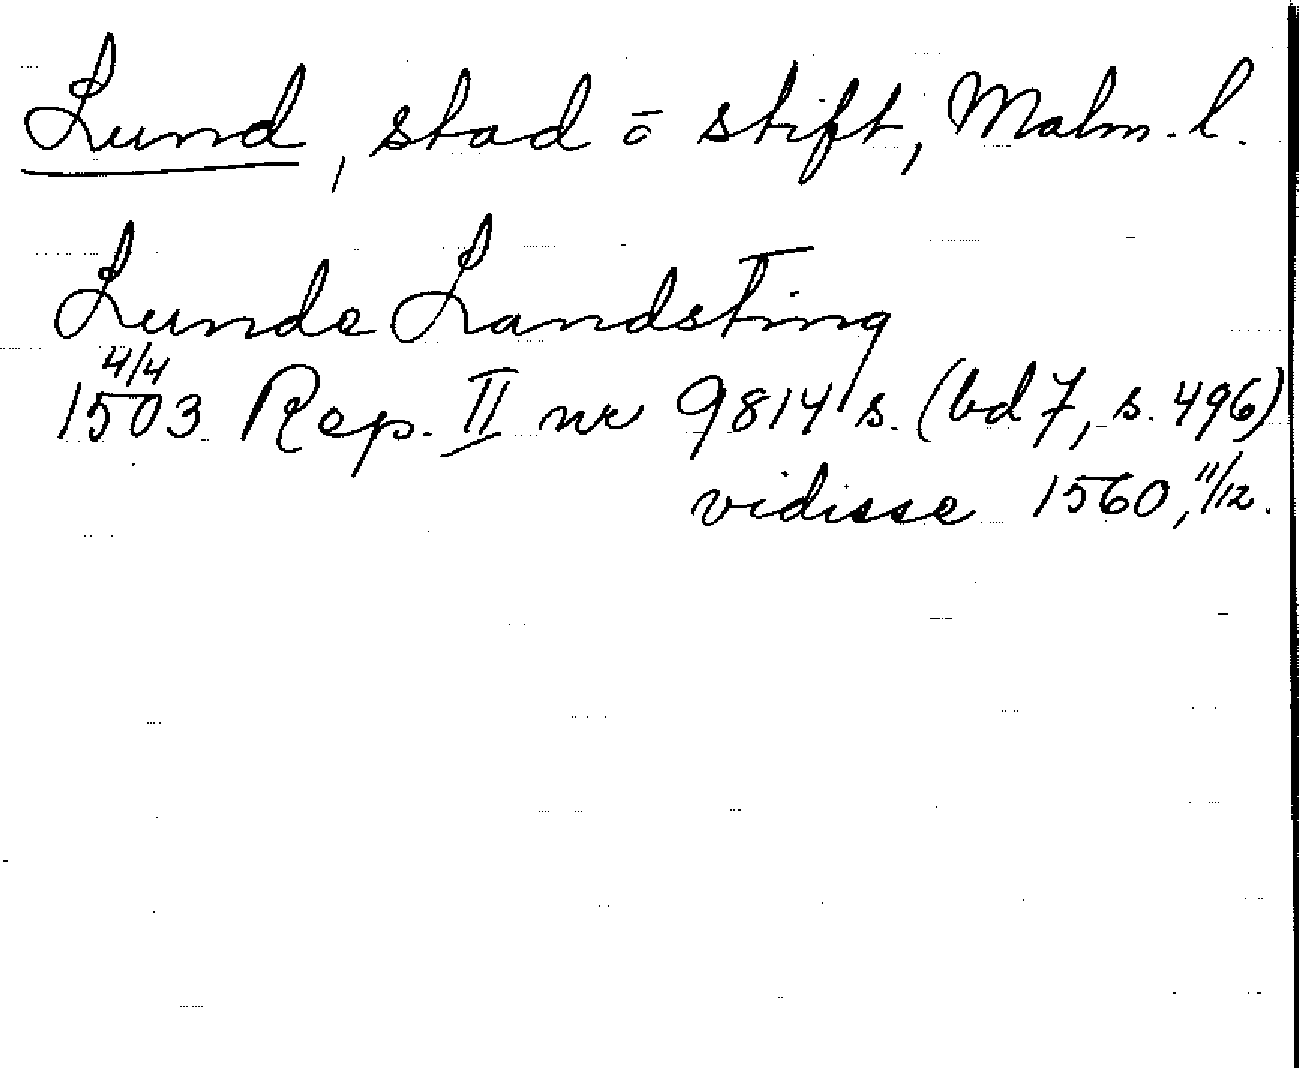 Lund, stad ō stift, Malm. l.
Lunde Landsting
4/4
1503 Rep. II nr 9814 s. (bd 7, s. 496)
vidisse 1560, 11/12.